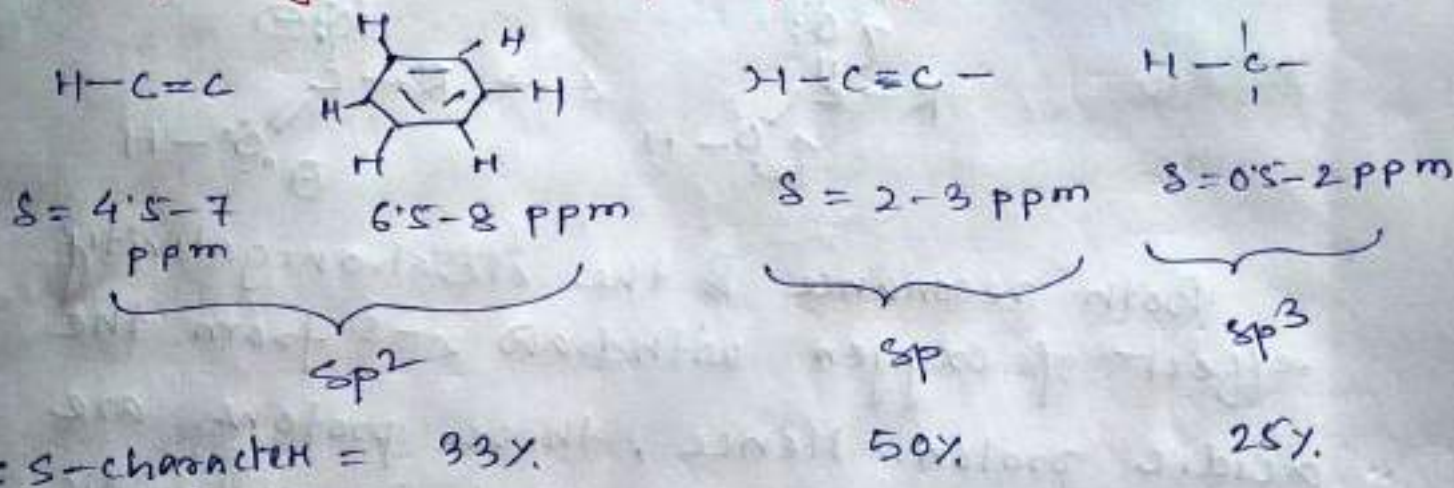 H-C=C
H H H H H H
H-C≡C-
H-C-
δ = 4.5-7 ppm
6.5-8 ppm
δ = 2-3 ppm
δ=0.5-2 ppm
sp²
sp
sp³
: s-character = 33%. 50%. 25%.